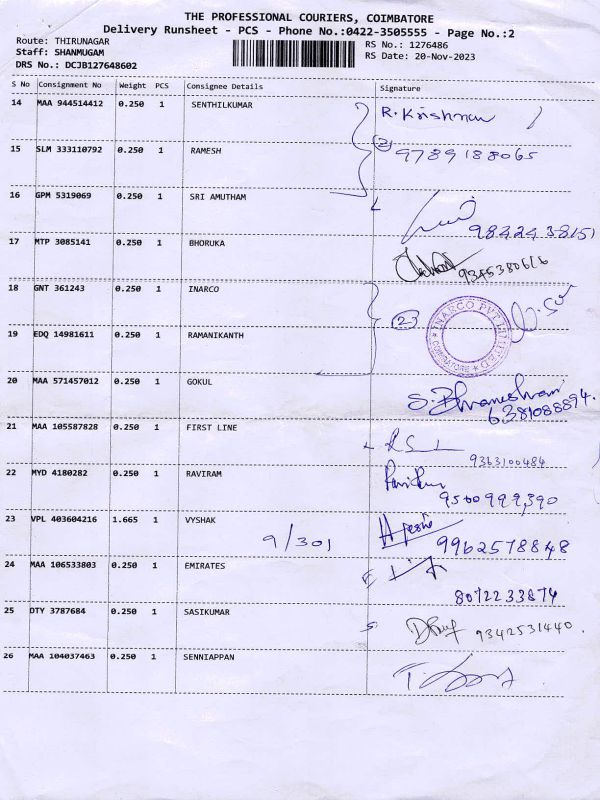 THE PROFESSIONAL COURIERS, COIMBATORE
Delivery Runsheet - PCS - Phone No.:0422-3505555 - Page No.:2
Route: THIRUNAGAR RS No.: 1276486
Staff: SHANMUGAM RS Date: 20-Nov-2023
DRS No.: DCJB127648602
S No Consignment No Weight PCS Consignee Details Signature
14 MAA 944514412 0.250 1 SENTHILKUMAR R. Krishnan
15 SLM 333110792 0.250 1 RAMESH (2) 9789188065
16 GPM 5319069 0.250 1 SRI AMUTHAM
9842438151
17 MTP 3085141 0.250 1 BHORUKA
9345380616
18 GNT 361243 0.250 1 INARCO
(2) INARCO PVT LIMITED COIMBATORE
19 EDQ 14981611 0.250 1 RAMANIKANTH
20 MAA 571457012 0.250 1 GOKUL S. Bhvaneshvari
6381088894.
21 MAA 105587828 0.250 1 FIRST LINE
9363100484
22 MYD 4180282 0.250 1 RAVIRAM
9500999390
23 VPL 403604216 1.665 1 VYSHAK
9/301 9962578848
24 MAA 106533803 0.250 1 EMIRATES
8072233874
25 DTY 3787684 0.250 1 SASIKUMAR
9342531440.
26 MAA 104037463 0.250 1 SENNIAPPAN